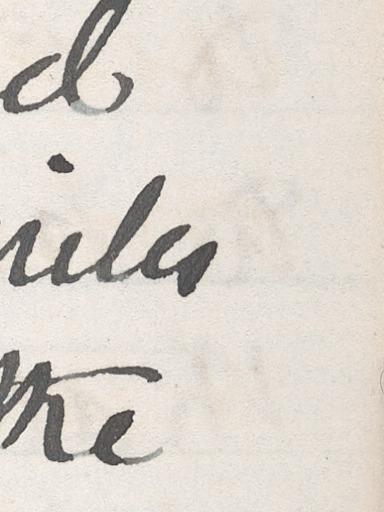 d
iles
the